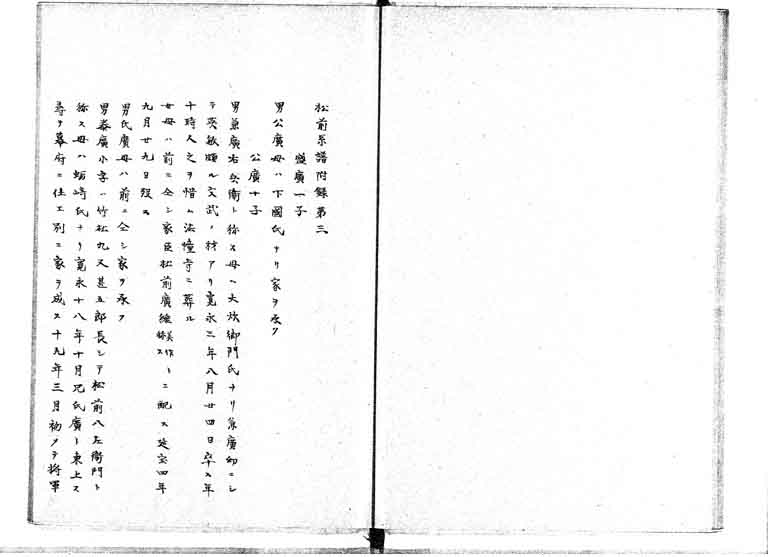 松前系譜附録第三
盛廣一子
男公廣母ハ下國氏ナリ家ヲ承ク
公廣十子
男兼廣右兵衛ト稱ス母ハ大炊御門氏ナリ兼廣幼ニシ
テ英敏頗ル文武ノ材アリ寛永三年八月廿四日卒ス年
十時人之ヲ惜ム法幢寺ニ葬ル
女母ハ前ニ仝シ家臣松前廣維美作ト稱スニ配ス延宝四年
九月廿九日歿ス
男氏廣母ハ前ニ仝シ家ヲ承ク
男泰廣小字ハ竹松丸又甚五郎長シテ松前八左衛門ト
稱ス母ハ蛎崎氏ナリ寛永十八年十月兄氏廣ト東上ス
尋テ幕府ニ仕エ別ニ家ヲ成ス十九年三月初メテ將軍